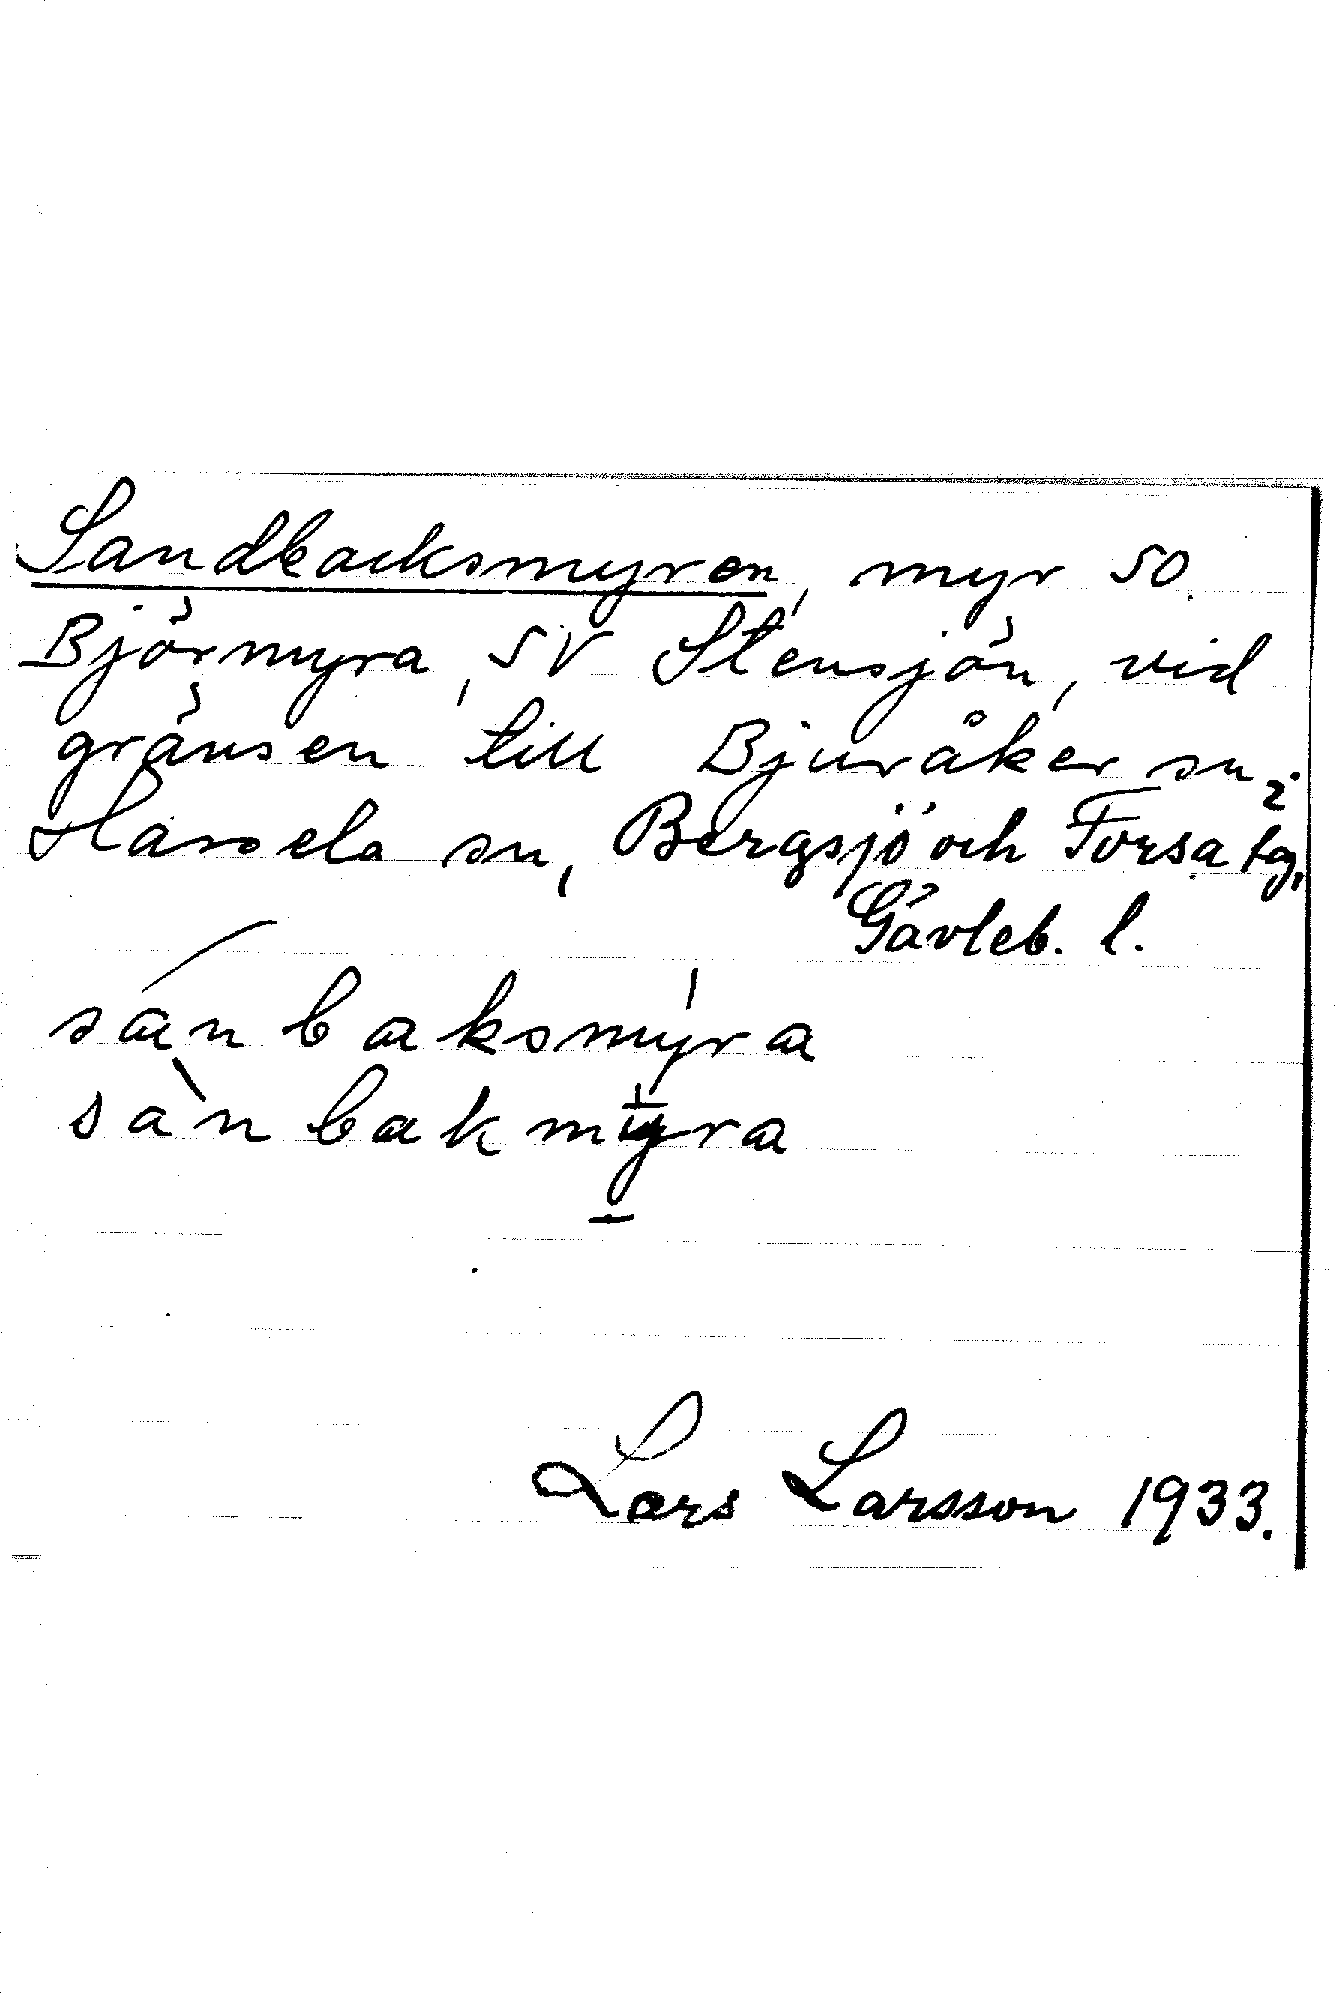 Sandbacksmyren, myr SO.
Björmyra, SV Stensjön, vid
gränsen till Bjuråker sn, i
Hassela sn, Bergsjö och Forsa tg,
Gävleb. l.
sánbaksmy̍ra
sànbakmy̍ra
Lars Larsson 1933.